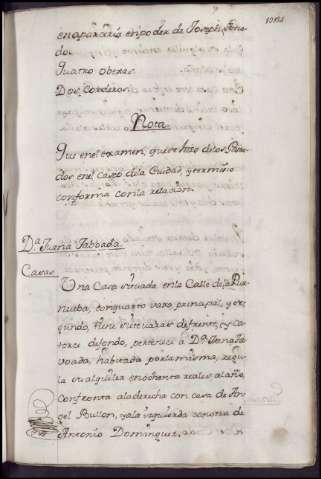 en aparceria en poder de Joseph
do.
Quatro obexas
Dos Corderos
Nota
Que en el examen, que se hizo de los
dos en el casco de la Ciudad, y termino
conforma con la relacion.
D.ª Juana Tabbada
Casas
Una Casa situada en la Calle de la
nueba, con quarto vaxo, principal, y se-
gundo, tiene siete varas de frente, y ca-
torce de fondo, pertenece a D.ª Juana Ta-
voada, habitada por la misma, regu-
la su alquiler en ochenta reales al año,
Confronta a la derecha con casa de An-
gel Buson, y a la izquierda con otra de
Antonio Dominguez,